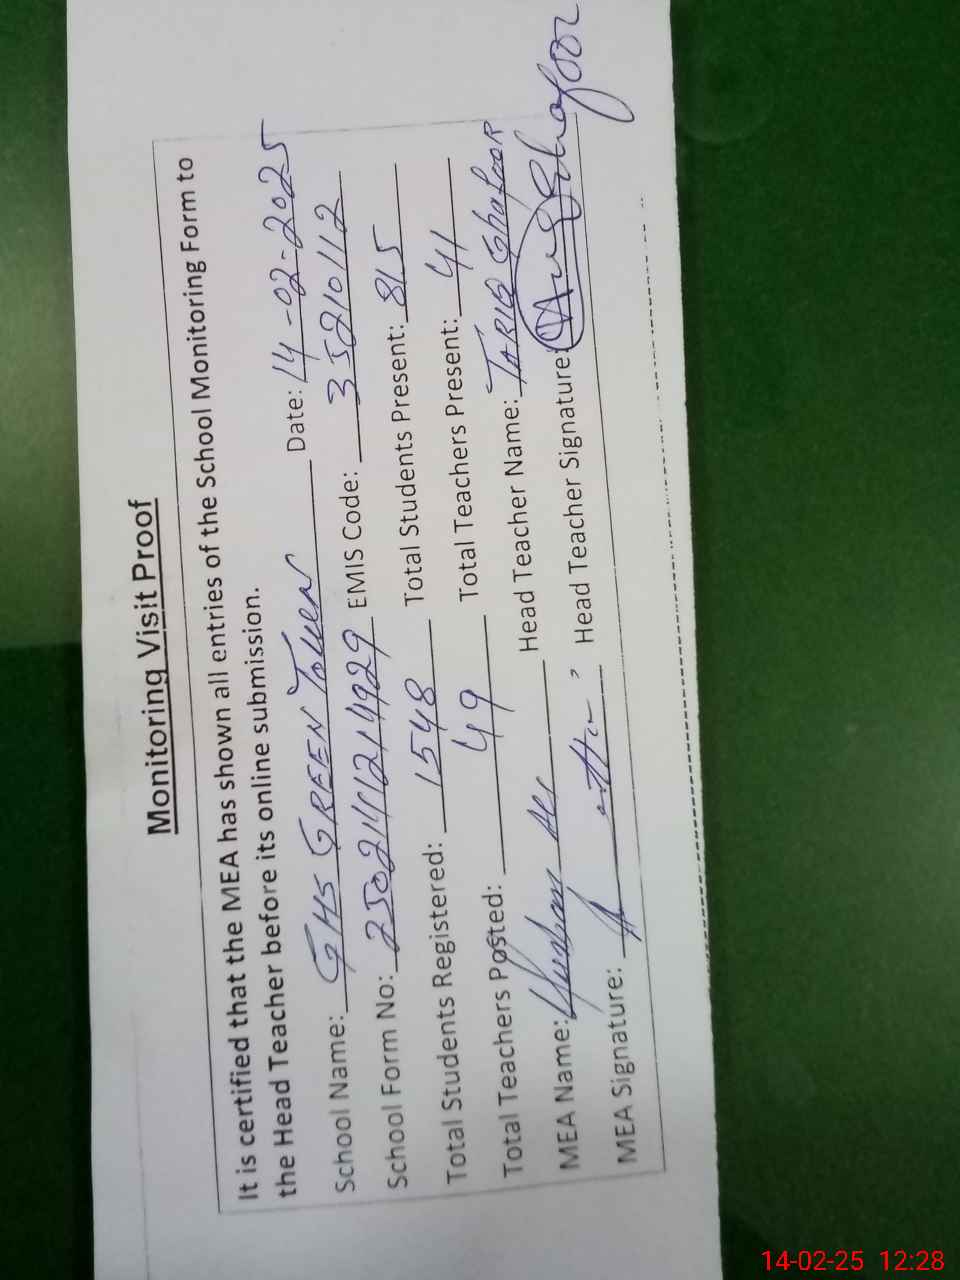 Monitoring Visit Proof
It is certified that the MEA has shown all entries of the School Monitoring Form to
the Head Teacher before its online submission.
School Name: GHS GREEN Tower Date: 14-02-2025
School Form No: 25021411214929 EMIS Code: 35210112
Total Students Registered: 1548 Total Students Present: 815
Total Teachers Posted: 49 Total Teachers Present: 41
MEA Name: Ali Head Teacher Name: TARIQ Ghafoor
MEA Signature: Head Teacher Signature: Ghafoor
14-02-25 12:28